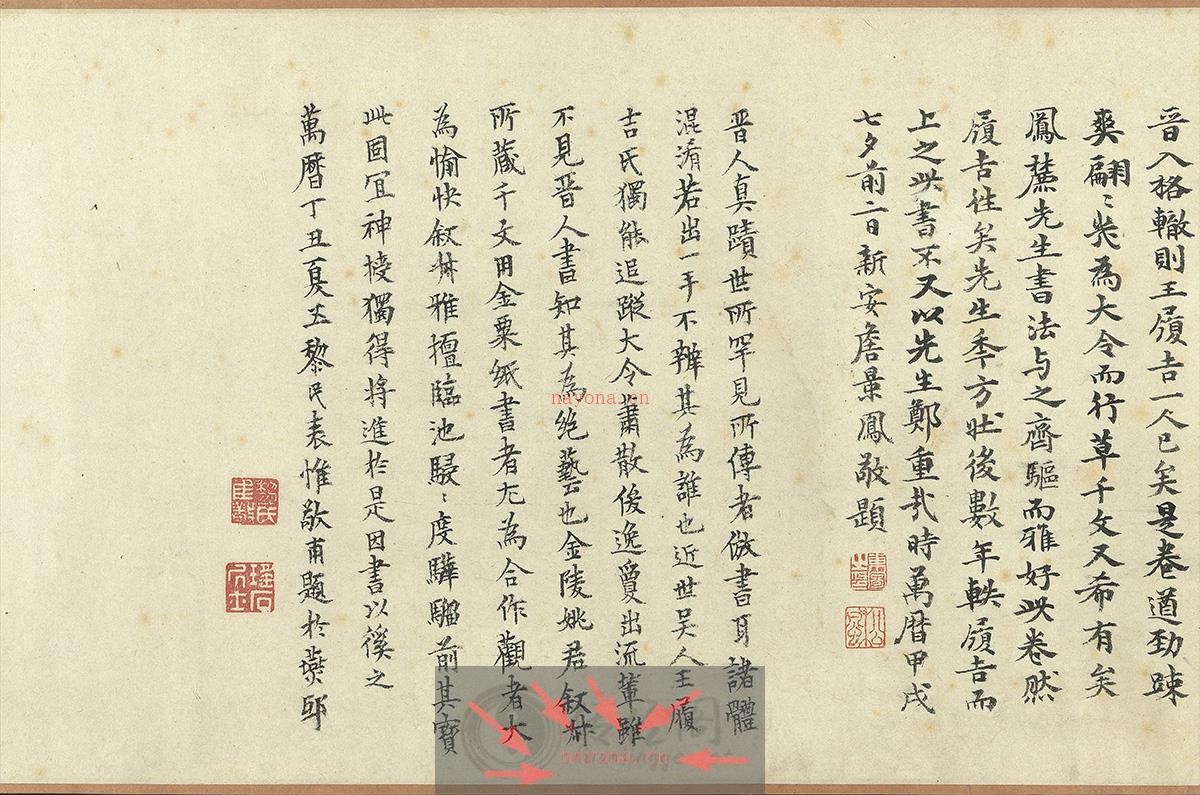 晉人格轍則王履吉一人已矣是卷遒勁疎
爽翩〻米為大令而行草千文又希有矣
鳳麓先生書法与之齊驅而雅好此卷然
履吉往矣先生季方壯後數年軼履吉而
上之此書不又以先生鄭重哉時萬曆甲戌
七夕前二日新安詹景鳳敬題
晋人真蹟世所罕見所傳者倣書耳諸體
混淆若出一手不辨其為誰也近世吴人王履
吉氏獨能追蹤大令蕭散俊逸敻出流輩雖
不見晋人書知其為絶藝也金陵姚君叙卿
所藏千文用金粟紙書者尤為合作觀者大
為愉快叙卿雅擅臨池駸〻度驊騮前其寶
此固宜神棲獨得將進於是因書以徯之
萬曆丁丑夏五黎民表惟敬甫題於燕邸
黎氏
瑤石
nayona.cn